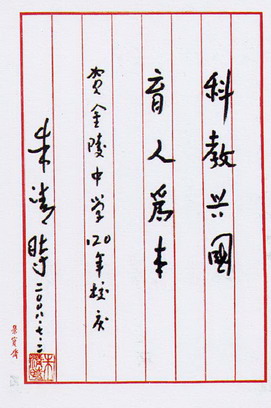 科教兴國
育人爲本
贺金陵中学120年校庆
朱清時
二〇〇八.七.二
荣宝斋